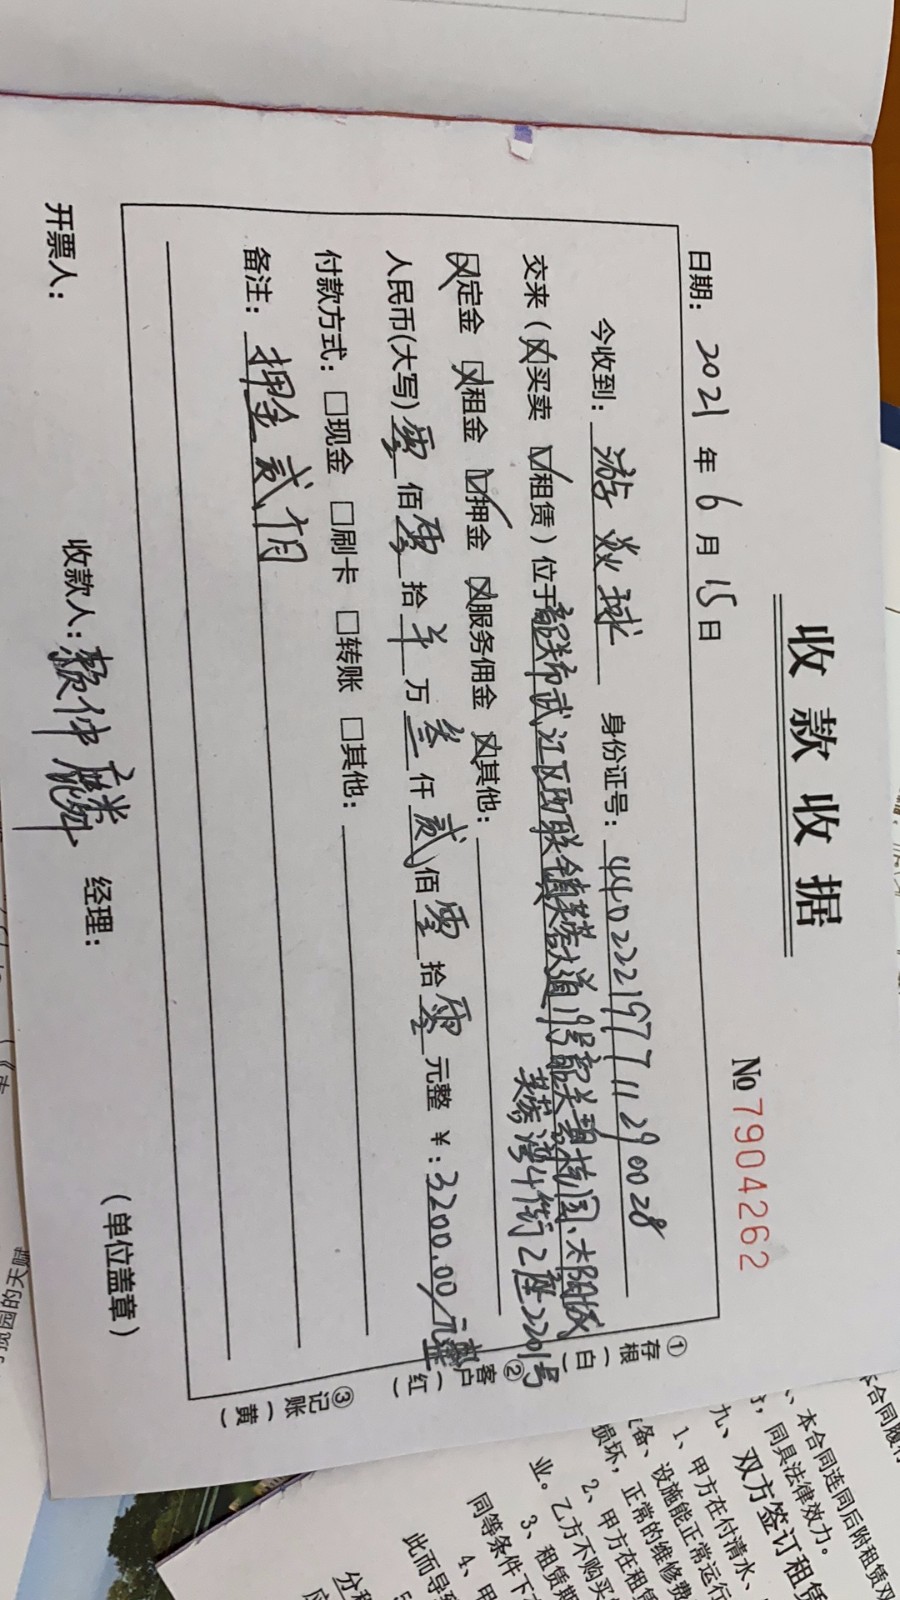 收款收据
No 7904262
日期： 2021 年 6 月 15 日
今收到： 游焱球 身份证号： 440222197711290028
交来（☒买卖 ☑租赁）位于韶关市武江区西联镇芙蓉大道18号韶关碧桂园、太阳城
芙蓉湾4街2座2201号
☒定金 ☒租金 ☑押金 ☒服务佣金 ☒其他：
人民币(大写) 零 佰 零 拾 万 叁 仟 贰 佰 零 拾 零 元整 ¥：3200.00/元整
付款方式：□现金 □刷卡 □转账 □其他：
备注： 押金贰个月
开票人： 收款人： 仲麟 经理： （单位盖章）
①存根（白）
②客户（红）
③记账（黄）
本合同履行
、本合同连同后附租赁双
，同具法律效力。
九、双方签订租赁
1、甲方在付清水、
备、设施能正常运行
损坏，正常的维修费
2、甲方在租赁
业。乙方不购买
3、租赁期
同等条件下
4、甲
此而导致
园的天赋